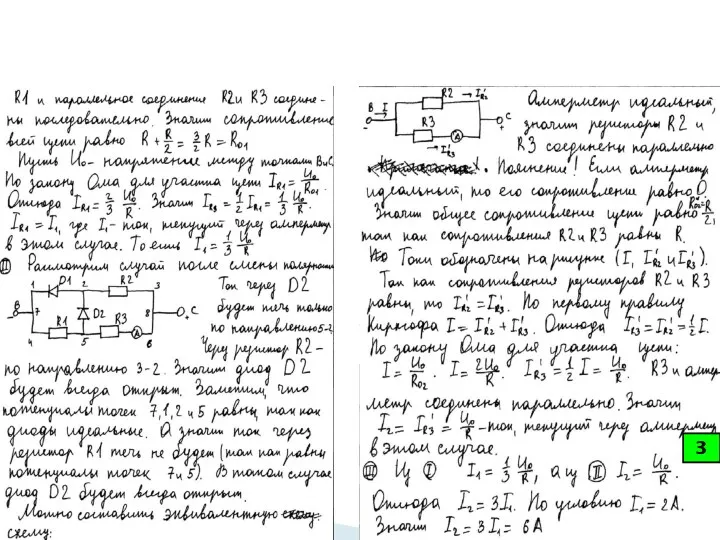 R1 и параллельное соединение R2 и R3 соедине-
ны последовательно. Значит сопротивление
всей цепи равно R + R/2 = 3/2 R = R01
Пусть U0 - напряжение между точками B и C
По закону Ома для участка цепи IR1 = U0/R01.
Отсюда IR1 = 2/3 U0/R. Значит IR3 = 1/2 IR1 = 1/3 U0/R.
IR1 = I1, где I1 - ток, текущий через амперметр
в этом случае. То есть I1 = 1/3 U0/R
II Рассмотрим случай после смены полярности
1 D1 2 R2 3
B 7 D2 8 C
R1 R3 A
4 5 6
Ток через D2
будет течь только
по направлению 5-2
Через резистор R2 -
по направлению 3-2. Значит диод D2
будет всегда открыт. Заметим, что
потенциалы точек 7,1,2 и 5 равны, так как
диоды идеальные. А значит ток через
резистор R1 течь не будет (так как равны
потенциалы точек 7 и 5). В таком случае
диод D2 будет всегда открыт.
Можно составить эквивалентную
схему:
R2 → I'R2
B I C
R3 A
→ I'R3
Амперметр идеальный,
значит резисторы R2 и
R3 соединены параллельно
. Пояснение! Если амперметр
идеальный, то его сопротивление равно 0.
Значит общее сопротивление цепи равно R02 = R/2,
так как сопротивления R2 и R3 равны R.
Токи обозначены на рисунке (I, I'R2 и I'R3).
Так как сопротивления резисторов R2 и R3
равны, то I'R2 = I'R3. По первому правилу
Кирхгофа I = I'R2 + I'R3. Отсюда I'R3 = I'R2 = 1/2 I.
По закону Ома для участка цепи:
I = U0/R02. I = 2U0/R. I'R3 = 1/2 I = U0/R. R3 и ампер
метр соединены параллельно. Значит
I2 = I'R3 = U0/R - ток, текущий через амперметр
в этом случае.
3
III Из I I1 = 1/3 U0/R, а из II I2 = U0/R.
Отсюда I2 = 3I1. По условию I1 = 2А.
Значит I2 = 3I1 = 6А